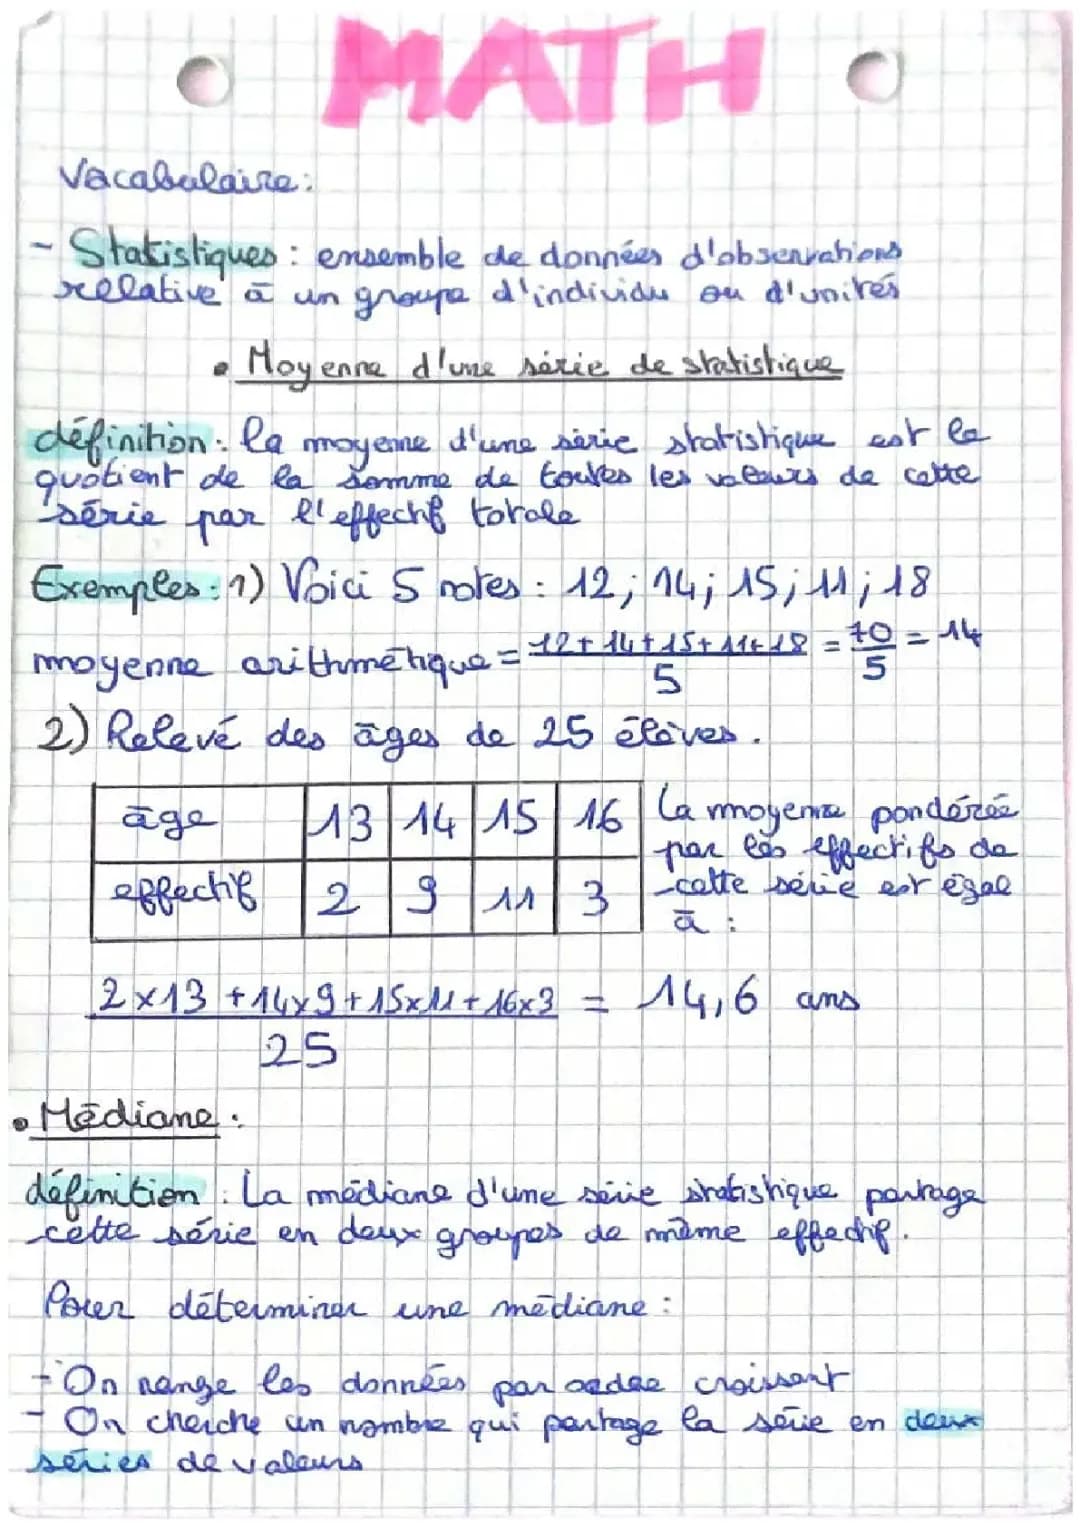 MATH
Vacabulaire:
- Statistiques : ensemble de données d'observations
rellative à un groupe d'individu ou d'unités
• Moyenne d'une série de statistique
définition : la moyenne d'une série statistique est le
quotient de la somme de toutes les valeurs de cette
série par l'effectif totale
Exemples : 1) Voici 5 notes : 12 ; 14 ; 15 ; 11 ; 18
moyenne arithmétique = 12 + 14 + 15 + 11 + 18 / 5 = 70 / 5 = 14
2) Relevé des âges de 25 élèves .
âge 13 14 15 16
effectif 2 9 11 3
La moyenne pondérée
par les effectifs de
cette série est égal
à :
2 x 13 + 14 x 9 + 15 x 11 + 16 x 3 = 14,6 ans
25
• Médiane :
définition : La médiane d'une série statistique partage
cette série en deux groupes de même effectif .
Pour déterminer une médiane :
- On range les données par ordre croissant
- On cherche un nombre qui partage la série en deux
séries de valeurs